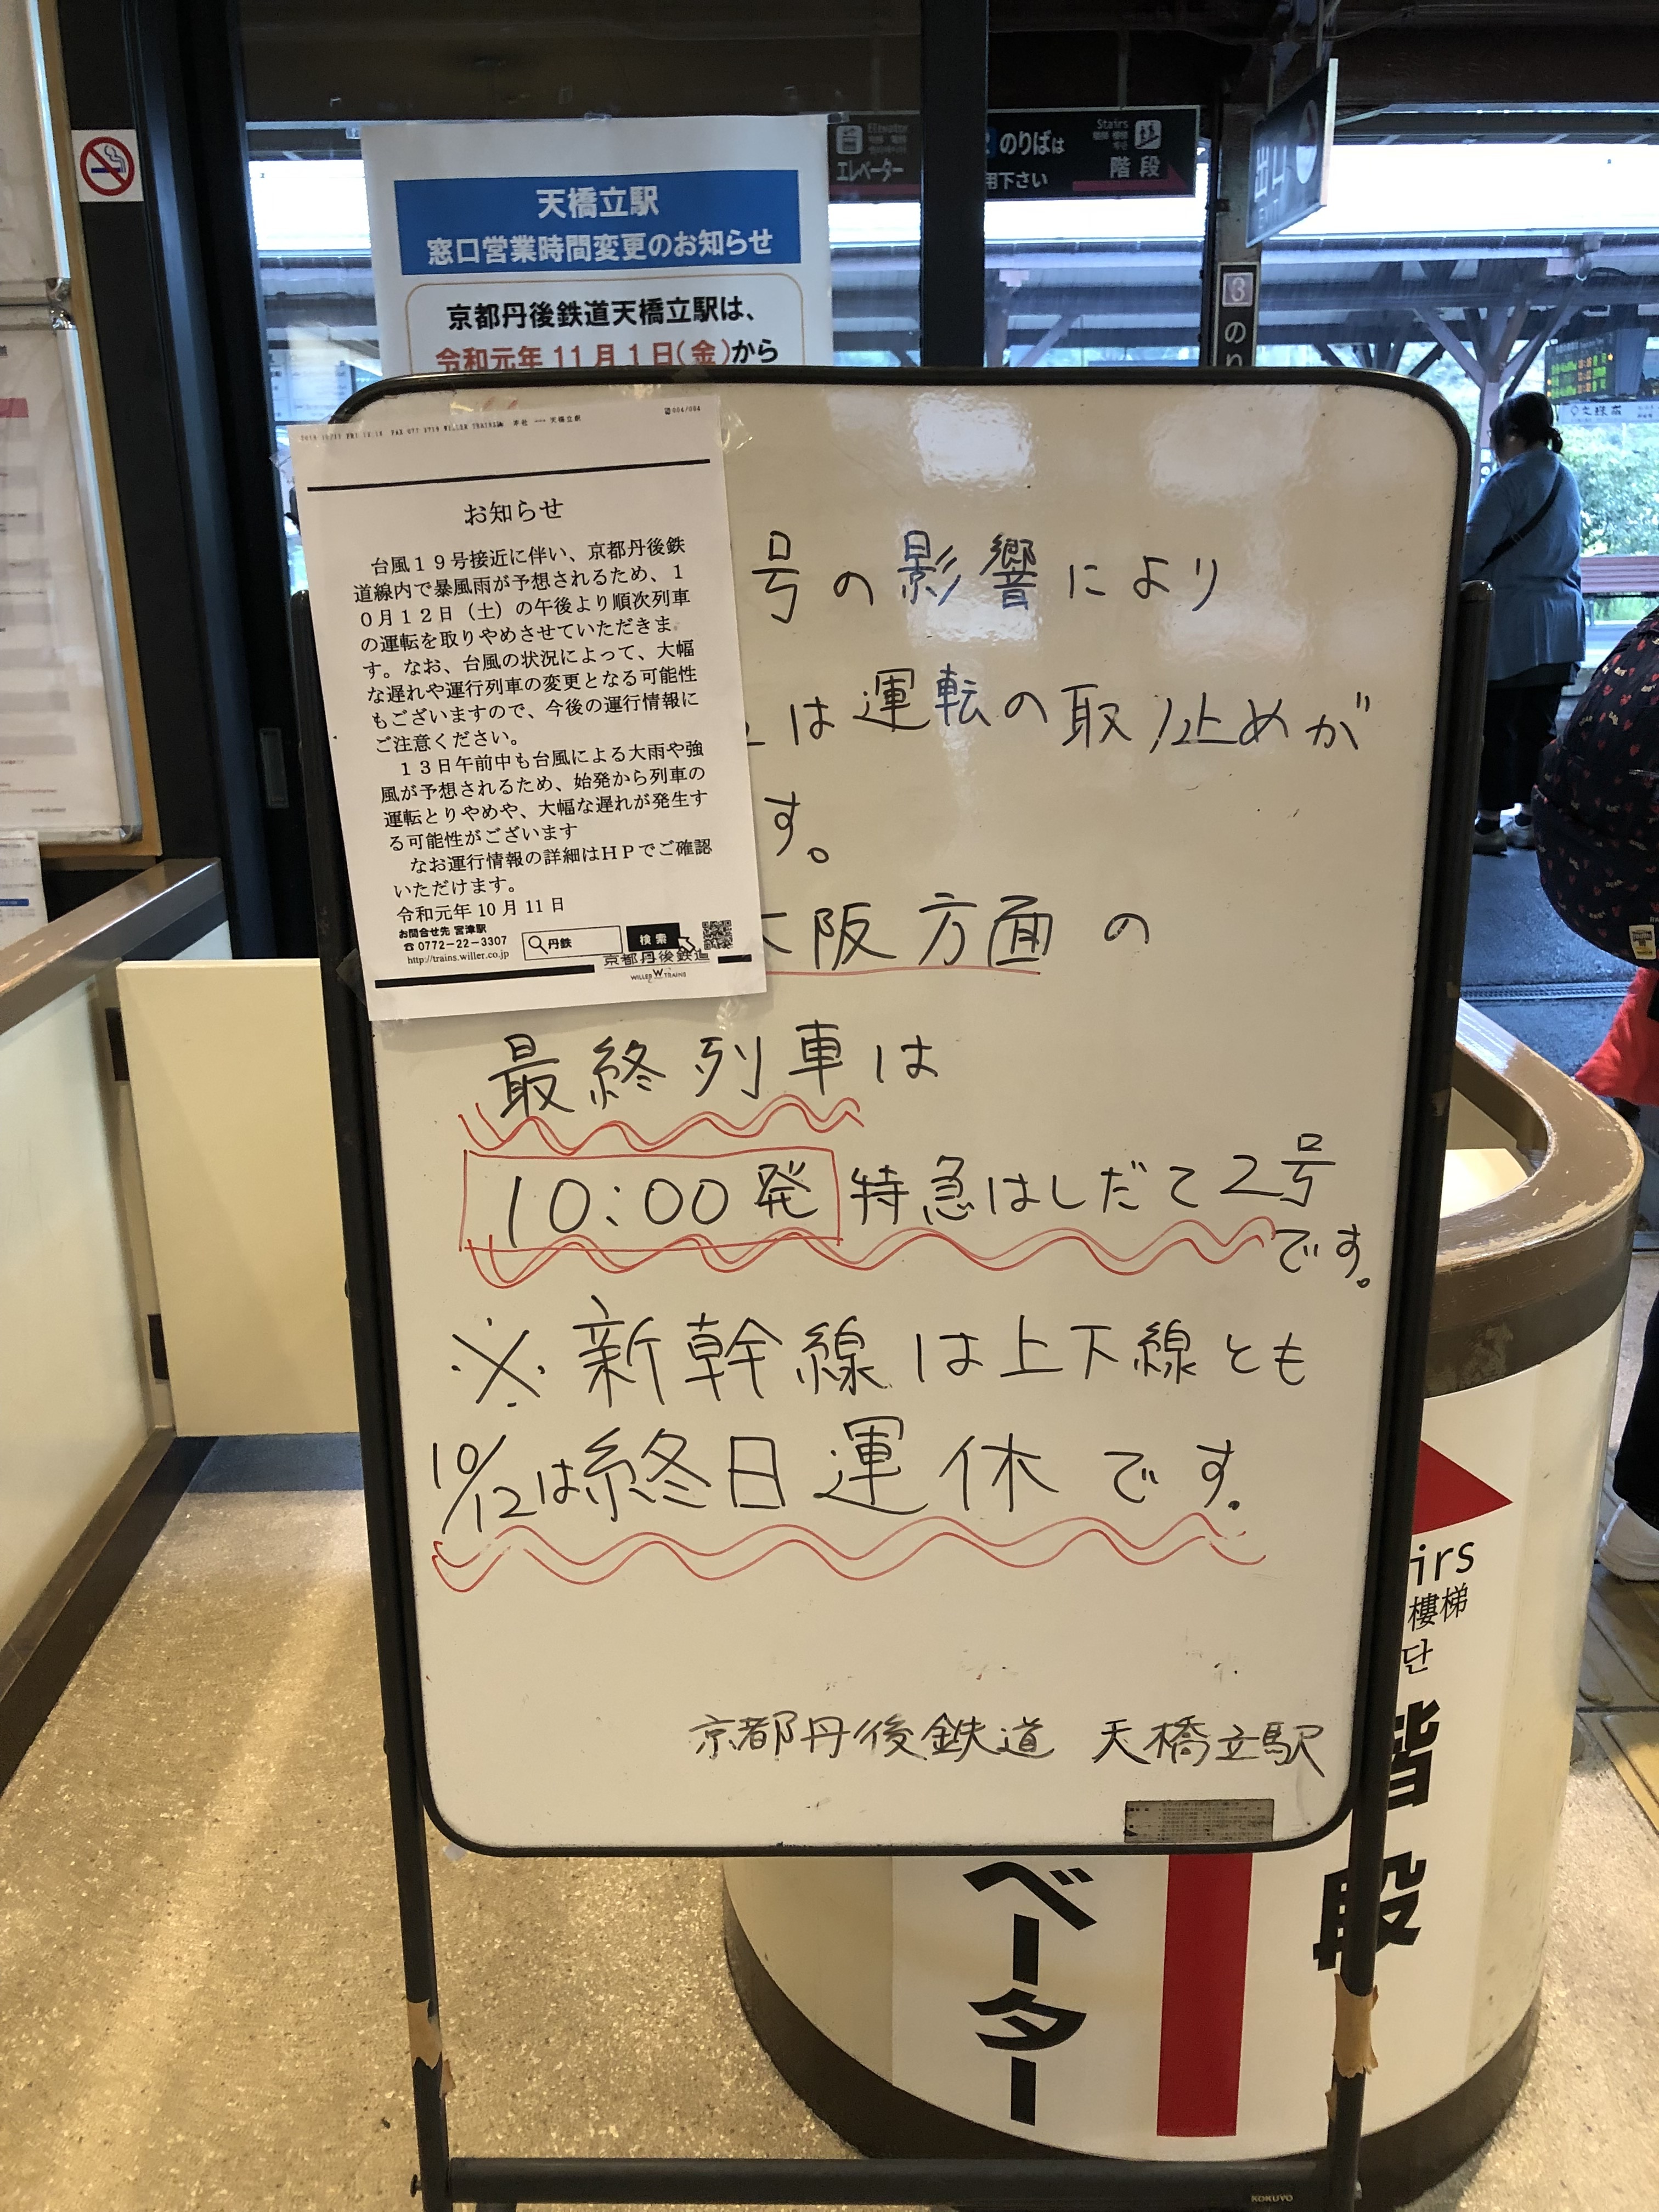 Elevator
エレベーター
のりばは
用下さい
Stairs
階段
出口
3
のり
天橋立駅
窓口営業時間変更のお知らせ
京都丹後鉄道天橋立駅は、
令和元年 11月1日(金)から
004/004
本社 --- 天橋立駅
お知らせ
台風19号接近に伴い、京都丹後鉄
道線内で暴風雨が予想されるため、1
0月12日（土）の午後より順次列車
の運転を取りやめさせていただきま
す。なお、台風の状況によって、大幅
な遅れや運行列車の変更となる可能性
もございますので、今後の運行情報に
ご注意ください。
13日午前中も台風による大雨や強
風が予想されるため、始発から列車の
運転とりやめや、大幅な遅れが発生す
る可能性がございます
なお運行情報の詳細はHPでご確認
いただけます。
令和元年10月11日
お問合せ先 宮津駅
☎0772-22-3307
http://trains.willer.co.jp
丹鉄
検索
京都丹後鉄道
WILLER TRAINS
号の影響により
は運転の取り止めが
す。
阪方面の
最終列車は
10:00発 特急はしだて2号
です。
※新幹線は上下線とも
10/12は終日運休です。
京都丹後鉄道 天橋立駅
irs
樓梯
단
階段
ベーター
KOKUYO